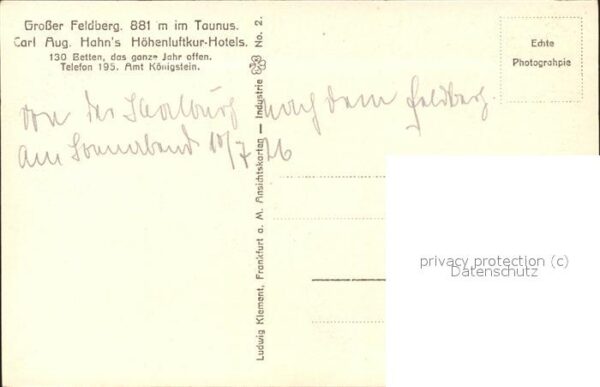 Großer Feldberg. 881 m im Taunus.
Carl Aug. Hahn's Höhenluftkur-Hotels.
130 Betten, das ganze Jahr offen.
Telefon 195. Amt Königstein.
Echte
Photograhpie
von der Saalburg nach dem Feldberg.
am Sonnabend 10/7 26
Ludwig Klement, Frankfurt a. M. Ansichtskarten — Industrie No. 2.
privacy protection (c)
Datenschutz